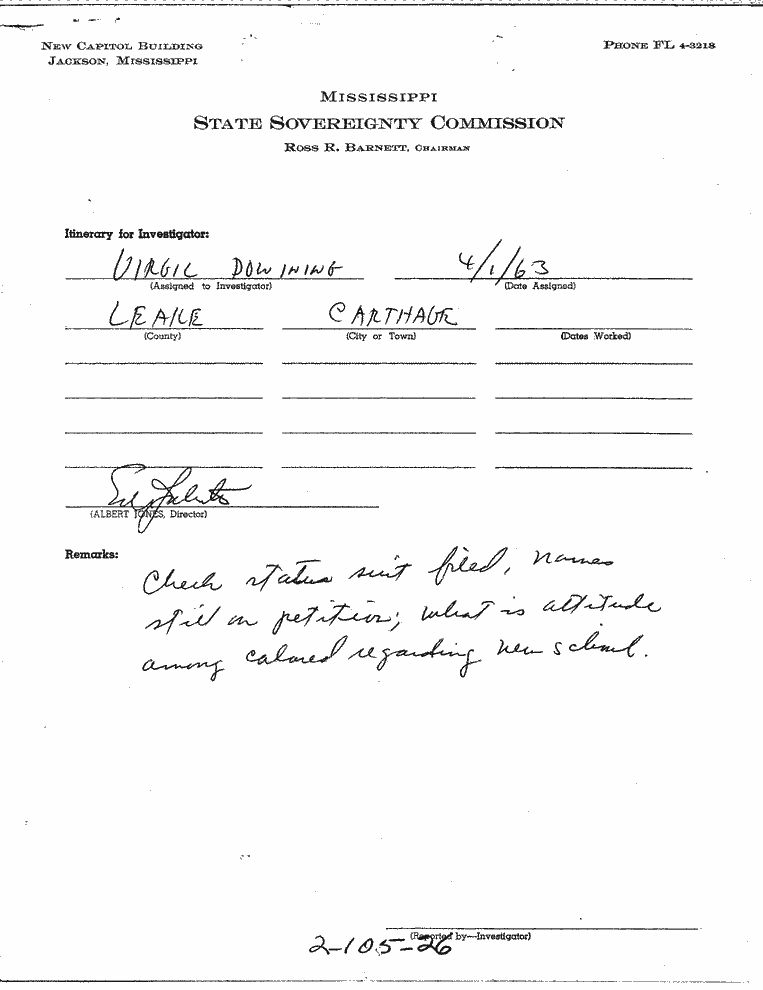 NEW CAPITOL BUILDING
JACKSON, MISSISSIPPI
PHONE FL 4-3218
MISSISSIPPI
STATE SOVEREIGNTY COMMISSION
ROSS R. BARNETT, CHAIRMAN
Itinerary for Investigator:
VIRGIL DOWNING 4/1/63
(Assigned to Investigator) (Date Assigned)
LEAKE CARTHAGE
(County) (City or Town) (Dates Worked)
(ALBERT JONES, Director)
Remarks:
Check status suit filed, names
still on petition; what is attitude
among colored regarding new school.
(Reported by—Investigator)
2-105-26